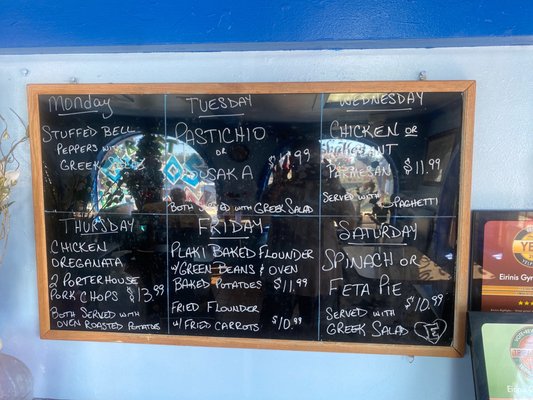 Monday
Stuffed Bell
Peppers with
Greek
Tuesday
Pastichio
or
usaka
Both served with Greek Salad
Wednesday
Chicken or
Parmesan $11.99
Served with Spaghetti
Thursday
Chicken
Oreganata
2 Porterhouse
Pork Chops $13.99
Both Served with
Oven Roasted Potatoes
Friday
Plaki Baked Flounder
w/Green Beans & Oven
Baked Potatoes $11.99
Fried Flounder
w/ Fried Carrots $10.99
Saturday
Spinach or
Feta Pie
$10.99
Served with
Greek Salad
E
Eirinis Gyr
Eirini